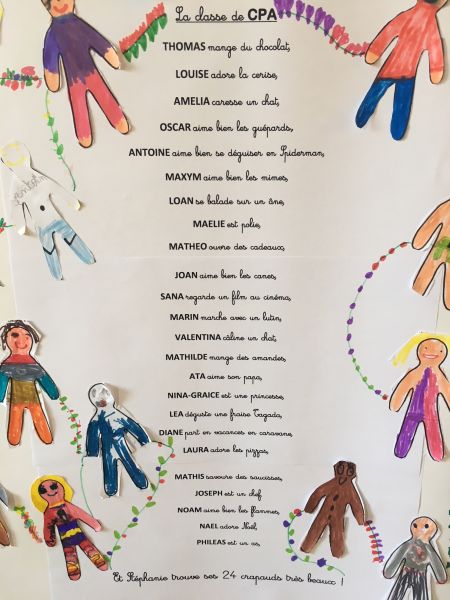 La classe de CPA
THOMAS mange du chocolat,
LOUISE adore la cerise,
AMELIA caresse un chat,
OSCAR aime bien les guépards,
ANTOINE aime bien se déguiser en Spiderman,
MAXYM aime bien les mimes,
LOAN se balade sur un âne,
MAELIE est polie,
MATHEO ouvre des cadeaux,
JOAN aime bien les canes,
SANA regarde un film au cinéma,
MARIN marche avec un lutin,
VALENTINA câline un chat,
MATHILDE mange des amandes,
ATA aime son papa,
NINA-GRAICE est une princesse,
LEA déguste une fraise Tagada,
DIANE part en vacances en caravane,
LAURA adore les pizzas,
MATHIS savoure des saucisses,
JOSEPH est un chef
NOAM aime bien les flammes,
NAEL adore Noël
PHILEAS est un as,
Et Stéphanie trouve ses 24 crapauds très beaux !